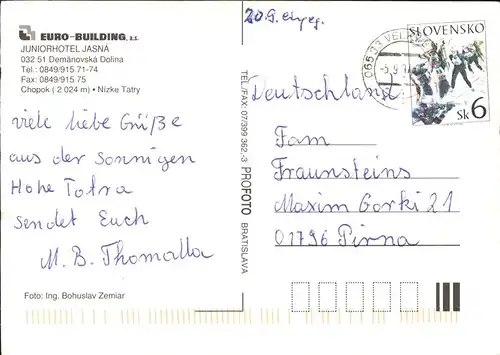 EURO-BUILDING, a.s.
JUNIORHOTEL JASNÁ
032 51 Demänovská Dolina
Tel.: 0849/915 71-74
Fax: 0849/915 75
Chopok (2 024 m) • Nízke Tatry
viele liebe Grüße
aus der Sonnigen
Hohe Tatra
sendet Euch
M. B. Thomalla
Foto: Ing. Bohuslav Zemiar
TEL./FAX: 07/399 362,-3 PROFOTO BRATISLAVA
20.9. eingeg.
SLOVENSKO
Sk 6
Deutschland
Fam
Fraunsteins
Maxim Gorki 21
01796 Pirna